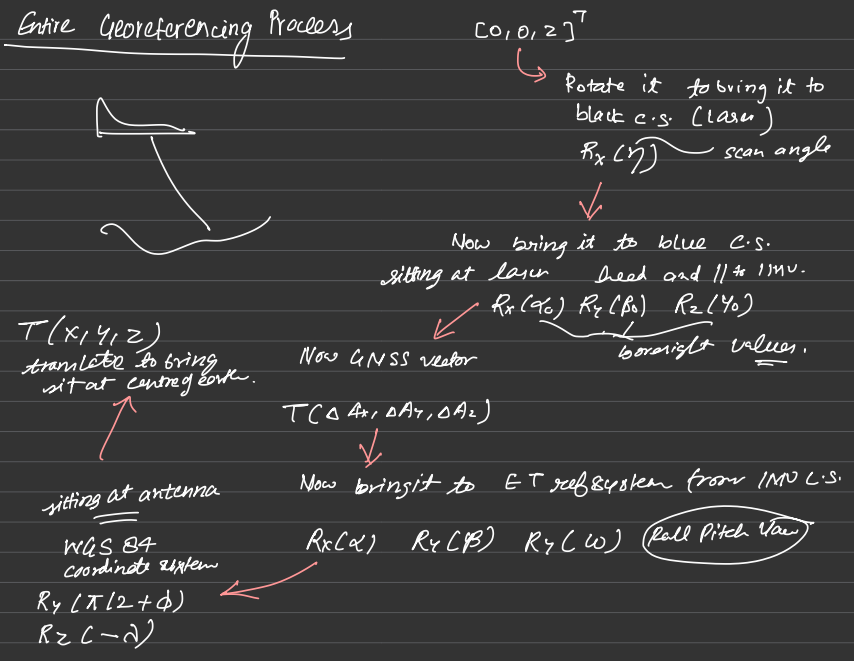 Entire Georeferencing Process
[0, 0, z]ᵀ
Rotate it to bring it to
black c.s. (laser)
Rx (η) scan angle
Now bring it to blue c.s.
sitting at laser head and || to IMU.
Rx(α₀) Ry(β₀) Rz(γ₀)
boresight values.
Now GNSS vector
T(Δ Ax, ΔAy, ΔAz)
Now bring it to ET ref system from IMU C.S.
Rx(α) Ry(β) Ry(ω) Roll Pitch Yaw
Ry (π/2+φ)
Rz (-λ)
WGS 84
coordinate system
sitting at antenna
T(x, y, z)
translate to bring
sit at centre of earth.